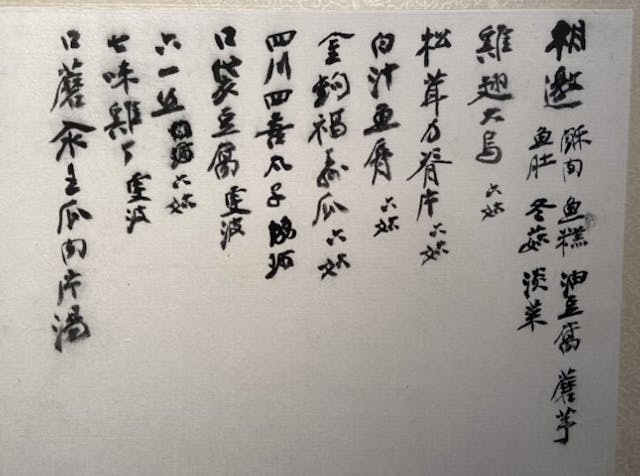 相邀 酥肉 魚糕 油豆腐 蘑芋
魚肚 冬菇 淡菜
雞翅大烏 六妹
松茸脊片 六妹
白汁魚唇 六妹
金鈎福壽瓜 六妹
四川四喜丸子
口袋豆腐 雯波
六一丝 六妹
七味雞丁 雯波
口蘑氽王瓜肉片湯